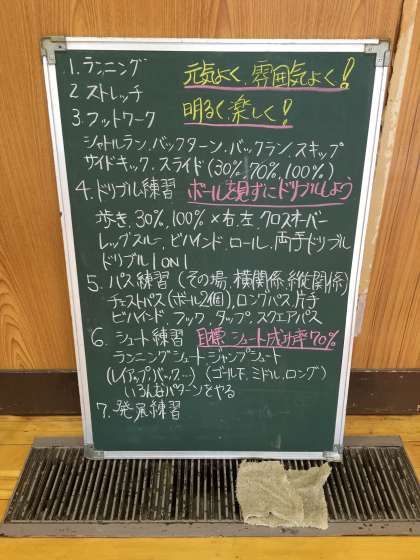 1. ランニング 元気よく、雰囲気よく!
2 ストレッチ 明るく楽しく!
3. フットワーク
シャトルラン、バックターン、バックラン、スキップ
サイドキック、スライド(30%,70%,100%)
4. ドリブル練習 ボールを見ずにドリブルしよう
歩き、30%,100%×右、左、クロスオーバー
レッグスルー、ビハインド、ロール、両手ドリブル
ドリブル1 on 1
5. パス練習 (その場、横関係、縦関係)
チェストパス(ボール2個)、ロングパス、片手
ビハインド フック、タップ、スクエアパス
6. シュート練習 目標 シュート成功率70%
ランニングシュート ジャンプシュート
(レイアップ,バック…) (ゴール下、ミドル、ロング)
いろんなパターンをやる
7. 発展練習